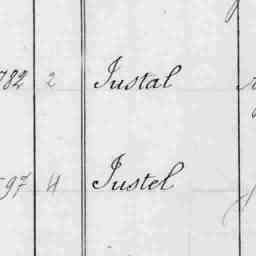 782 2 Justal
597 4 Justel